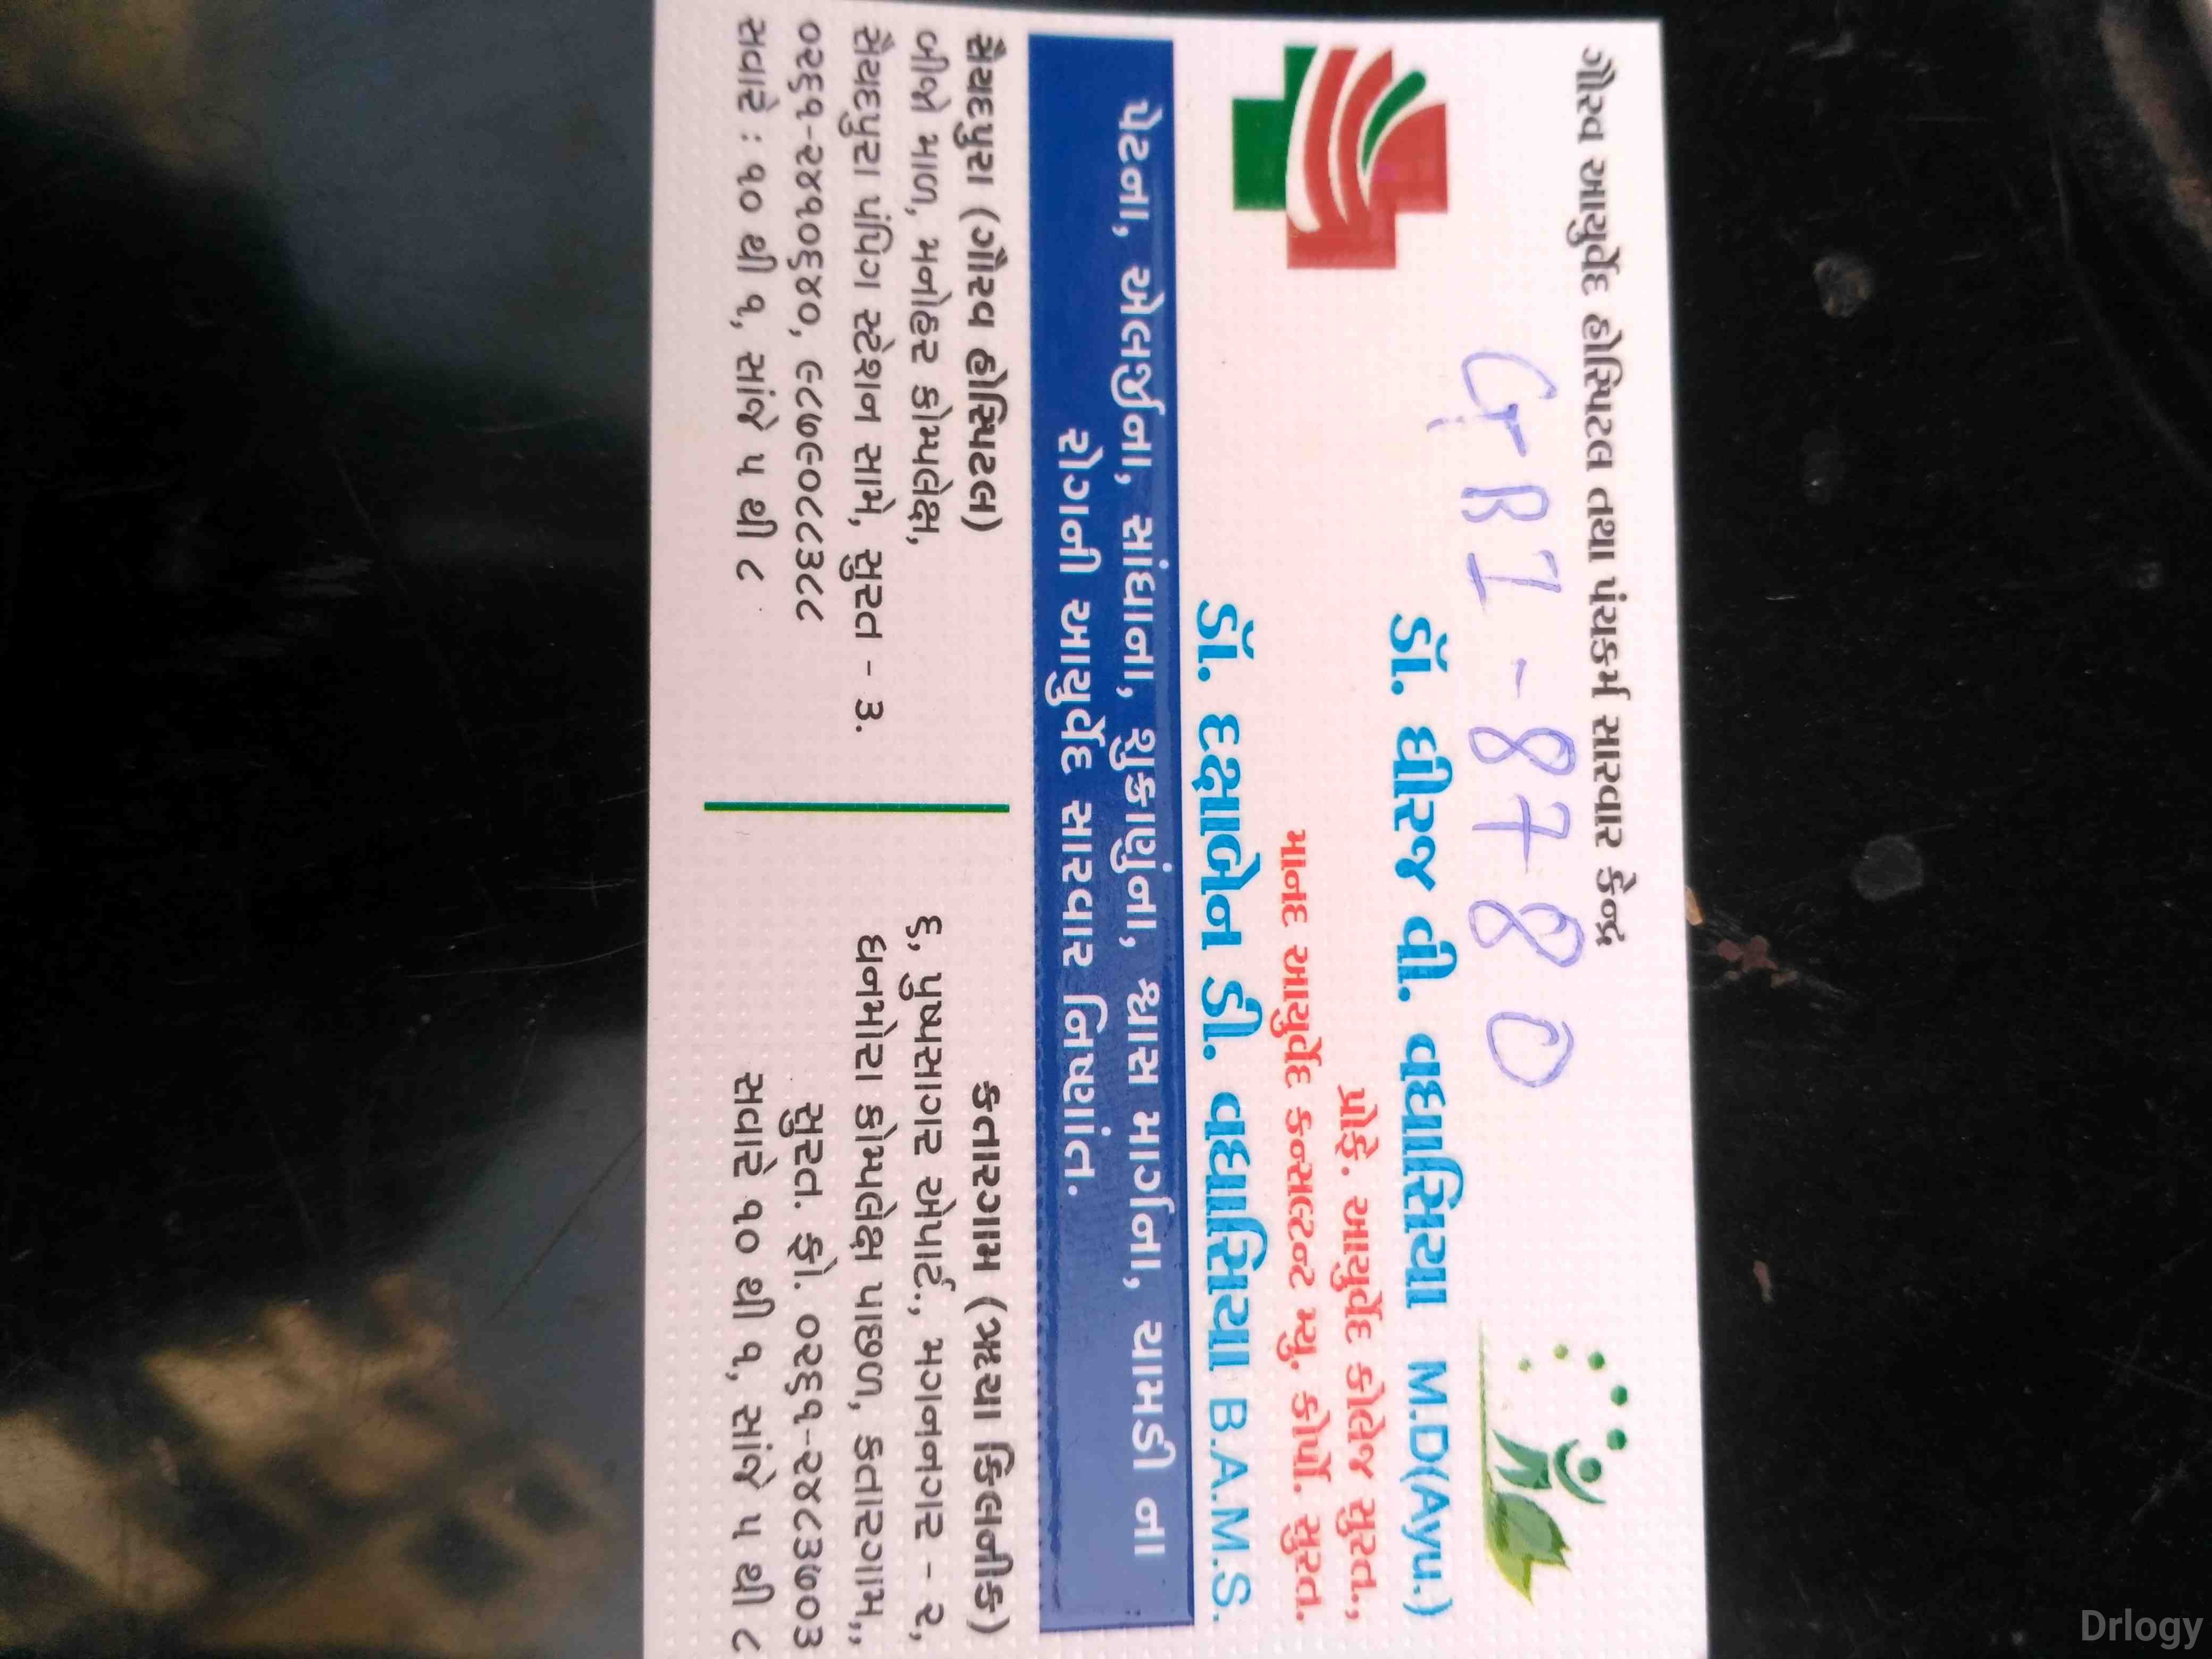 ગૌરવ આયુર્વેદ હોસ્પિટલ તથા પંચકર્મ સારવાર કેન્દ્ર
GBI - 8780
ડૉ. ધીરજ વી. વઘાસિયા M.D(Ayu.)
પ્રોફે. આયુર્વેદ કોલેજ સુરત.,
માનદ આયુર્વેદ કન્સલ્ટન્ટ મ્યુ. કોર્પો. સુરત.
ડૉ. દક્ષાબેન ડી. વઘાસિયા B.A.M.S.
પેટના, એલર્જીના, સાંધાના, શુક્રાણુંના, શ્વાસ માર્ગના, ચામડી ના
રોગની આયુર્વેદ સારવાર નિષ્ણાંત.
સૈયદપુરા (ગૌરવ હોસ્પિટલ)
બીજો માળ, મનોહર કોમ્પલેક્ષ,
સૈયદપુરા પંપિગ સ્ટેશન સામે, સુરત - ૩.
૦૨૬૧-૨૪૧૦૬૪૦, ૯૮૭૯૦૮૮૩૮૮
સવારે : ૧૦ થી ૧, સાંજે ૫ થી ૮
કતારગામ (ઋચા ક્લિનીક)
૬, પુષ્પસાગર એપાર્ટ., મગનનગર - ૨,
ધનમોરા કોમ્પલેક્ષ પાછળ, કતારગામ,,
સુરત. ફો. ૦૨૬૧-૨૪૮૩૭૦૩
સવારે ૧૦ થી ૧, સાંજે ૫ થી ૮
Drlogy